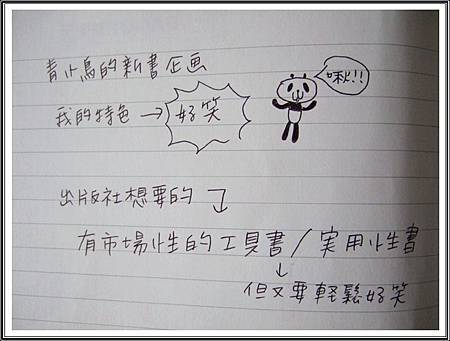 青小鳥的新書企画
我的特色→好笑
啾!!
出版社想要的
有市場性的工具書/実用性書
↓
但又要輕鬆好笑